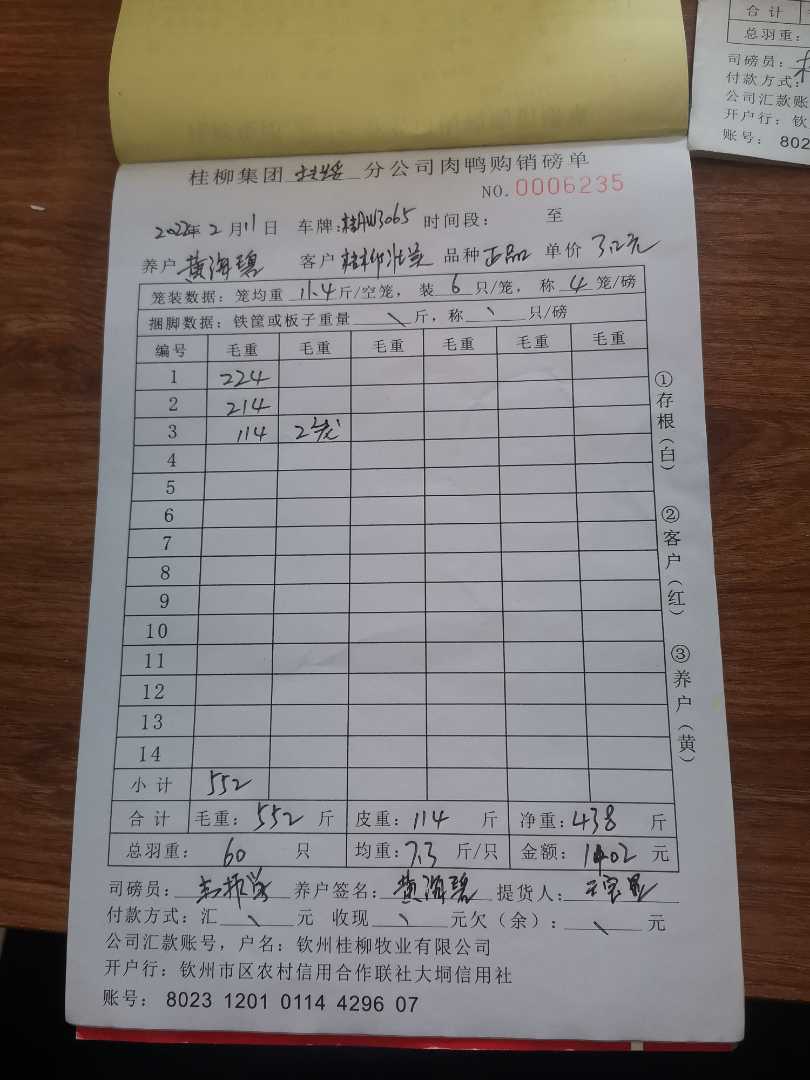 合 计
总羽重：
司磅员：
付款方式：
公司汇款账
开户行：钦
账号： 802
桂柳集团 分公司肉鸭购销磅单
NO.0006235
2022年 2月11日 车牌：桂AW3065 时间段： 至
养户 黄海碧 客户 桂柳 品种 正品 单价 3.2元
笼装数据：笼均重 11.4 斤/空笼，装 6 只/笼，称 4 笼/磅
捆脚数据：铁筐或板子重量 \ 斤，称 \ 只/磅
编号 毛重 毛重 毛重 毛重 毛重 毛重
1 224
2 214
3 114 2笼
4
5
6
7
8
9
10
11
12
13
14
小 计 552
合 计 毛重：552 斤 皮重：114 斤 净重：438 斤
总羽重： 60 只 均重：7.3 斤/只 金额：1402 元
司磅员： 养户签名：黄海碧 提货人：
付款方式：汇 \ 元 收现 \ 元欠（余）： \ 元
公司汇款账号，户名：钦州桂柳牧业有限公司
开户行：钦州市区农村信用合作联社大垌信用社
账号： 8023 1201 0114 4296 07
①存根（白）
②客户（红）
③养户（黄）